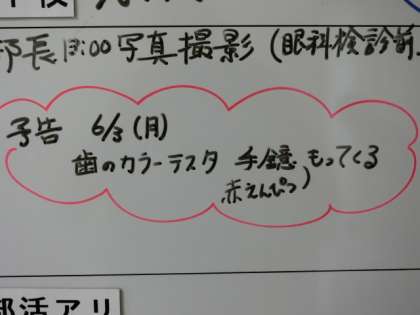 部長 13:00 写真撮影 (眼科検診前
予告 6/3 (月)
歯のカラーテスタ 手鏡 もってくる
赤えんぴつ
部活アリ